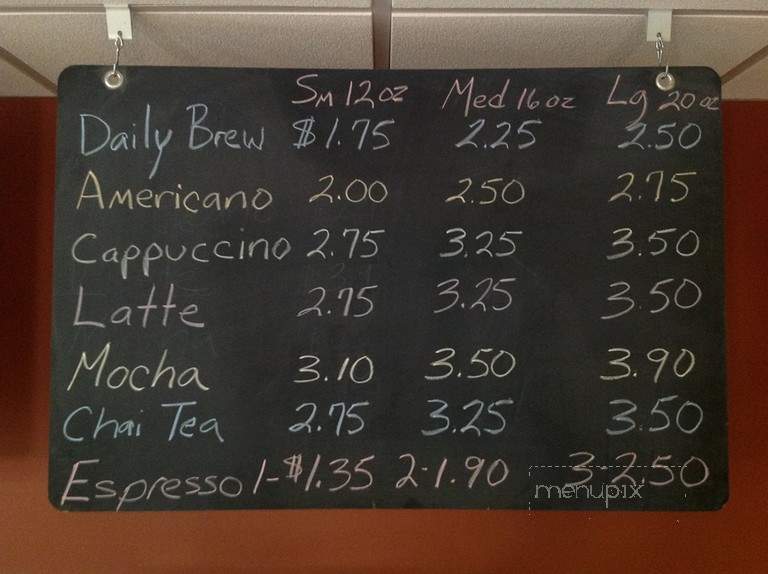 Sm 12 oz Med 16 oz Lg 20 oz
Daily Brew $1.75 2.25 2.50
Americano 2.00 2.50 2.75
Cappuccino 2.75 3.25 3.50
Latte 2.75 3.25 3.50
Mocha 3.10 3.50 3.90
Chai Tea 2.75 3.25 3.50
Espresso 1-$1.35 2-1.90 3-2.50
menupix